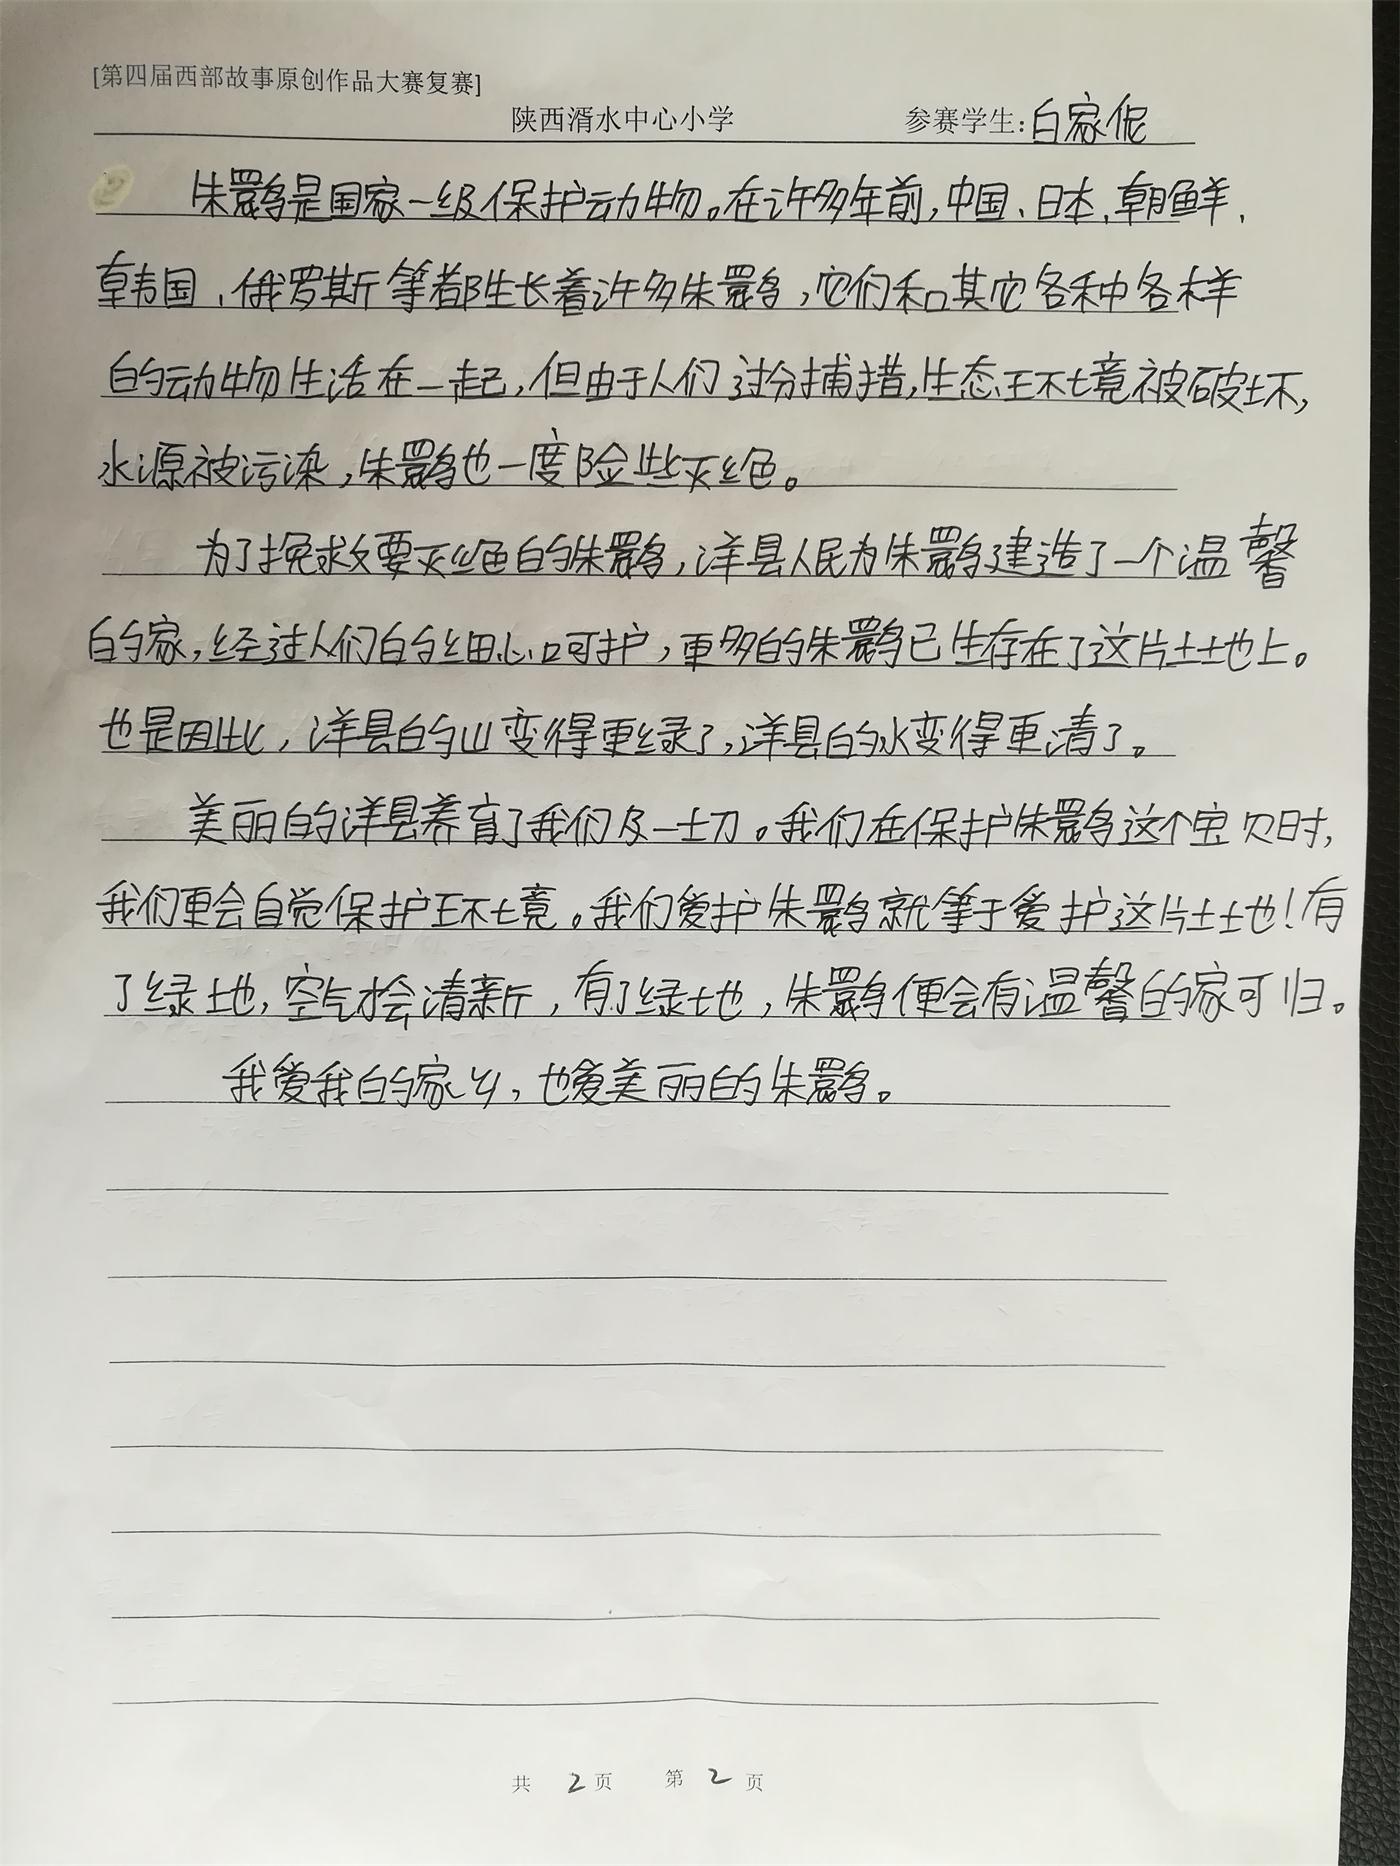 [第四届西部故事原创作品大赛复赛]
陕西湑水中心小学 参赛学生:白家倪
朱鹮是国家一级保护动物。在许多年前,中国、日本、朝鲜、
韩国、俄罗斯等都生长着许多朱鹮,它们和其它各种各样
的动物生活在一起,但由于人们过分捕措,生态环境被破坏,
水源被污染,朱鹮也一度险些灭绝。
为了挽救要灭绝的朱鹮,洋县人民为朱鹮建造了一个温馨
的家,经过人们的细心呵护,更多的朱鹮已生存在了这片土地上。
也是因此,洋县的山变得更绿了,洋县的水变得更清了。
美丽的洋县养育了我们及一切。我们在保护朱鹮这个宝贝时,
我们更会自觉保护环境。我们爱护朱鹮就等于爱护这片土地!有
了绿地,空气才会清新,有了绿地,朱鹮便会有温馨的家可归。
我爱我的家乡,也爱美丽的朱鹮。
共 2 页 第 2 页